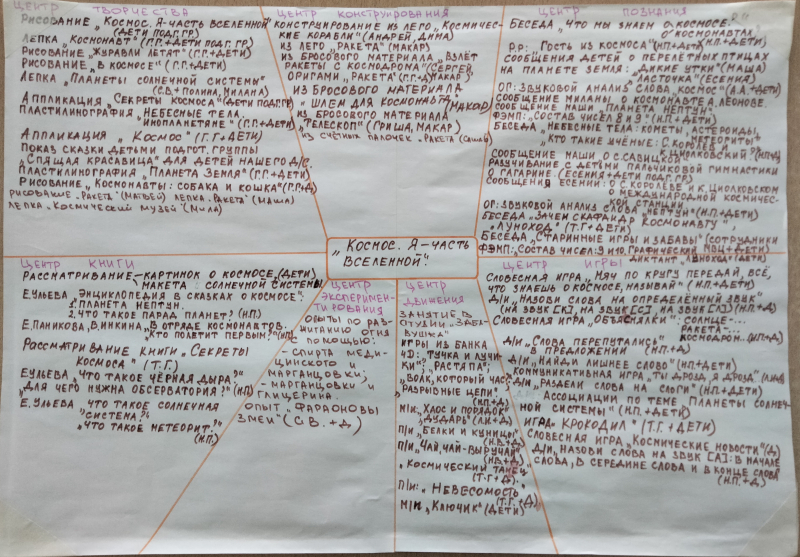 ЦЕНТР ТВОРЧЕСТВА
РИСОВАНИЕ „КОСМОС. Я-ЧАСТЬ ВСЕЛЕННОЙ"
(ДЕТИ ПОДГ. ГР)
ЛЕПКА „КОСМОНАВТ" (Г.Г.+ДЕТИ ПОДГ. ГР)
РИСОВАНИЕ „ЖУРАВЛИ ЛЕТЯТ" (Г.Г.+ДЕТИ)
РИСОВАНИЕ „В КОСМОСЕ" (Г.Г.+ДЕТИ)
ЛЕПКА „ПЛАНЕТЫ СОЛНЕЧНОЙ СИСТЕМЫ"
(С.В.+ПОЛИНА, МИЛАНА)
АППЛИКАЦИЯ „СЕКРЕТЫ КОСМОСА" (ДЕТИ ПОДГ. ГР)
ПЛАСТИЛИНОГРАФИЯ „НЕБЕСНЫЕ ТЕЛА.
ИНОПЛАНЕТЯНЕ" (Г.Г.+ДЕТИ)
АППЛИКАЦИЯ „КОСМОС" (Т.Г.+ДЕТИ)
ПОКАЗ СКАЗКИ ДЕТЬМИ ПОДГОТ. ГРУППЫ
„СПЯЩАЯ КРАСАВИЦА" ДЛЯ ДЕТЕЙ НАШЕГО Д/С
ПЛАСТИЛИНОГРАФИЯ „ПЛАНЕТА ЗЕМЛЯ" (Г.Г.+ДЕТИ)
РИСОВАНИЕ „КОСМОНАВТЫ: СОБАКА И КОШКА" (Г.Г.+Д)
РИСОВАНИЕ „РАКЕТА" (МАТВЕЙ) ЛЕПКА „РАКЕТА" (МАША)
ЛЕПКА „КОСМИЧЕСКИЙ МУЗЕЙ" (МИЛА)
ЦЕНТР КОНСТРУИРОВАНИЯ
КОНСТРУИРОВАНИЕ ИЗ ЛЕГО „КОСМИЧЕС-
КИЕ КОРАБЛИ" (АНДРЕЙ, ДИМА)
ИЗ ЛЕГО „РАКЕТА" (МАКАР)
ИЗ БРОСОВОГО МАТЕРИАЛА „ВЗЛЁТ
РАКЕТЫ С КОСМОДРОМА" (СЕРГЕЙ,
ОРИГАМИ „РАКЕТА" (Г.Г.+Д) МАКАР)
ИЗ БРОСОВОГО МАТЕРИАЛА
„ШЛЕМ ДЛЯ КОСМОНАВТА"
(МАКАР)
ИЗ БРОСОВОГО МАТЕРИАЛА
„ТЕЛЕСКОП" (ГРИША, МАКАР)
ИЗ СЧЁТНЫХ ПАЛОЧЕК „РАКЕТА"
ЦЕНТР ПОЗНАНИЯ
БЕСЕДА „ЧТО МЫ ЗНАЕМ О КОСМОСЕ.
О КОСМОНАВТАХ"
(Н.П.+ДЕТИ)
Р.Р.: „ГОСТЬ ИЗ КОСМОСА" (Н.П.+ДЕТИ)
СООБЩЕНИЯ ДЕТЕЙ О ПЕРЕЛЁТНЫХ ПТИЦАХ
НА ПЛАНЕТЕ ЗЕМЛЯ: „ДИКИЕ УТКИ" (МАША)
„ЛАСТОЧКА" (ЕСЕНИЯ)
ОГ: ЗВУКОВОЙ АНАЛИЗ СЛОВА „КОСМОС" (А.А.+ДЕТИ)
СООБЩЕНИЕ МИЛАНЫ О КОСМОНАВТЕ А. ЛЕОНОВЕ.
СООБЩЕНИЕ МАШИ „ПЛАНЕТА НЕПТУН".
ФЭМП: „СОСТАВ ЧИСЕЛ 8 И 9" (Н.П.+ДЕТИ)
БЕСЕДА „НЕБЕСНЫЕ ТЕЛА: КОМЕТЫ, АСТЕРОИДЫ,
МЕТЕОРИТЫ"
„КТО ТАКИЕ УЧЁНЫЕ: С. КОРОЛЁВ И
К. ЦИОЛКОВСКИЙ?" (Н.П.+Д)
СООБЩЕНИЕ МАШИ О С. САВИЦКОЙ
РАЗУЧИВАНИЕ С ДЕТЬМИ ПАЛЬЧИКОВОЙ ГИМНАСТИКИ
О ГАГАРИНЕ. (ЕСЕНИЯ+ДЕТИ ПОДГ. ГР)
СООБЩЕНИЯ ЕСЕНИИ: О С. КОРОЛЁВЕ И К. ЦИОЛКОВСКОМ
О МЕЖДУНАРОДНОЙ КОСМИЧЕС-
КОЙ СТАНЦИИ
ОГ: ЗВУКОВОЙ АНАЛИЗ СЛОВА „НЕПТУН" (Н.П.+ДЕТИ)
БЕСЕДА „ЗАЧЕМ СКАФАНДР КОСМОНАВТУ",
„ЛУНОХОД" (Т.Г.+ДЕТИ)
БЕСЕДА „СТАРИННЫЕ ИГРЫ И ЗАБАВЫ" (СОТРУДНИКИ
ФЭМП: „СОСТАВ ЧИСЕЛ 9 И 10. ГРАФИЧЕСКИЙ
ДИКТАНТ „ЛУНОХОД" (ДЕТИ)
„КОСМОС. Я-ЧАСТЬ
ВСЕЛЕННОЙ".
ЦЕНТР КНИГИ
РАССМАТРИВАНИЕ КАРТИНОК О КОСМОСЕ (ДЕТИ)
МАКЕТА СОЛНЕЧНОЙ СИСТЕМЫ
Е. УЛЬЕВА „ЭНЦИКЛОПЕДИЯ В СКАЗКАХ О КОСМОСЕ":
1. ПЛАНЕТА НЕПТУН.
2. ЧТО ТАКОЕ ПАРАД ПЛАНЕТ? (Н.П.)
Е. ПАНИКОВА, В. ИНКИНА „В ОТРЯДЕ КОСМОНАВТОВ.
КТО ПОЛЕТИТ ПЕРВЫМ?" (Н.П)
РАССМАТРИВАНИЕ КНИГИ „СЕКРЕТЫ
КОСМОСА" (Т.Г.)
Е. УЛЬЕВА „ЧТО ТАКОЕ ЧЁРНАЯ ДЫРА?"
„ДЛЯ ЧЕГО НУЖНА ОБСЕРВАТОРИЯ?" (Н.П)
Е. УЛЬЕВА „ЧТО ТАКОЕ СОЛНЕЧНАЯ
СИСТЕМА?"
„ЧТО ТАКОЕ МЕТЕОРИТ?"
(Н.П.)
ЦЕНТР
ЭКСПЕРИМЕН-
ТИРОВАНИЯ
ОПЫТЫ ПО РАЗ-
ЖИГАНИЮ ОГНЯ
С ПОМОЩЬЮ:
-СПИРТА МЕДИ-
ЦИНСКОГО И
МАРГАНЦОВКИ,
-МАРГАНЦОВКИ И
ГЛИЦЕРИНА.
ОПЫТ „ФАРАОНОВЫ
ЗМЕИ" (С.В.+Д)
ЦЕНТР
ДВИЖЕНИЯ
ЗАНЯТИЕ В
СТУДИИ „ЗАБА-
ВУШКА"
ИГРЫ ИЗ БАНКА
4Д: „ТУЧКА И ЛУЧИ-
КИ", „РАСТЯПА",
„ВОЛК, КОТОРЫЙ ЧАС"
„РАЗРЫВНЫЕ ЦЕПИ"
(Н.П.+Д)
М/И: „ХАОС И ПОРЯДОК"
„ДУДАРЬ" (Л.И.+Д)
П/И „БЕЛКИ И КУНИЦЫ"
(Н.В.+Д)
П/И „ЧАЙ, ЧАЙ-ВЫРУЧАЙ"
(Н.В.+Д)
„КОСМИЧЕСКИЙ ТАНЕЦ"
(Т.Г.+Д)
П/И: „НЕВЕСОМОСТЬ"
(Т.Г.+Д)
М/П „КЛЮЧИК" (ДЕТИ)
ЦЕНТР ИГРЫ
СЛОВЕСНАЯ ИГРА „МЯЧ ПО КРУГУ ПЕРЕДАЙ, ВСЁ,
ЧТО ЗНАЕШЬ О КОСМОСЕ, НАЗЫВАЙ" (Н.П.+ДЕТИ)
Д/И „НАЗОВИ СЛОВА НА ОПРЕДЕЛЁННЫЙ ЗВУК"
(НА ЗВУК [К], НА ЗВУК [С], НА ЗВУК [А]) (Н.П.+Д)
СЛОВЕСНАЯ ИГРА „ОБЪЯСНЯЛКИ": СОЛНЦЕ-...
РАКЕТА-...
КОСМОДРОМ...
Д/И „СЛОВА ПЕРЕПУТАЛИСЬ"
В ПРЕДЛОЖЕНИИ (Н.П.+Д)
Д/И „НАЙДИ ЛИШНЕЕ СЛОВО" (Н.П.+ДЕТИ)
КОММУНИКАТИВНАЯ ИГРА „ТЫ ДРОЗД, Я ДРОЗД"
Д/И „РАЗДЕЛИ СЛОВА НА СЛОГИ" (Н.П.+ДЕТИ)
АССОЦИАЦИИ ПО ТЕМЕ „ПЛАНЕТЫ СОЛНЕЧ-
НОЙ СИСТЕМЫ" (Н.П.+ДЕТИ)
ИГРА „КРОКОДИЛ" (Т.Г.+ДЕТИ)
СЛОВЕСНАЯ ИГРА „КОСМИЧЕСКИЕ НОВОСТИ" (Д)
Д/И „НАЗОВИ СЛОВА НА ЗВУК [А]: В НАЧАЛЕ
СЛОВА, В СЕРЕДИНЕ СЛОВА И В КОНЦЕ СЛОВА
(Н.П.+Д)